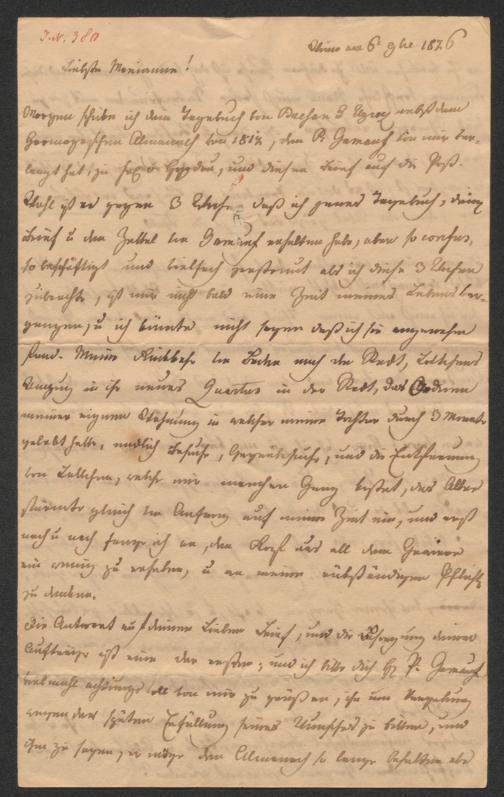 J.N. 380
Wien am 6t 9br 1826
Liebste Marianne!
Morgen schike ich dein Tagebuch von Bachen S Egrag nebst dem
Almanach von 1812, den P. von mir ver-
langt hat, zu und diesen Brief auf die Post.
Wohl ist es gegen 3 Wochen daß ich jenes Tagebuch, deinen
Brief u den Zettel von erhalten habe, aber so confus,
so beschäftigt und vielfach zerstreut als ich diese 3 Wochen
zubrachte, ist mir nicht bald eine Zeit meines Lebens ver-
gangen, u ich könnte nicht sagen daß ich sie angenehm
fand. Meine Rückkehr von Baden nach der Stadt, Lottchens
Einzug in ihr neues Quartier in der Stadt, das Ordnen
meiner eignen Wohnung in welcher meine Tochter durch 3 Monate
gelebt hatte, endlich Besuche, Gegenbesuche, und die Entfernung
von Lottchen, welche mir manchen Gang kostet, das Alles
stürmte gleich von Anfang auf meine Zeit ein, und erst
nach u nach fange ich an, den Kopf aus all dem Gewirre
ein wenig zu erheben, u an meine rükständigen Pflichten
zu denken.
Die Antwort auf deinen lieben Brief, und die Besorgung deiner
Aufträge ist eine der ersten, und ich bitte dich H. P.
vielmahl achtungsvoll von mir zu grüßen, ihn um Vergebung
wegen der späten Erfüllung seines Wunsches zu bitten, und
ihm zu sagen, er möge den Almanach so lange behalten als